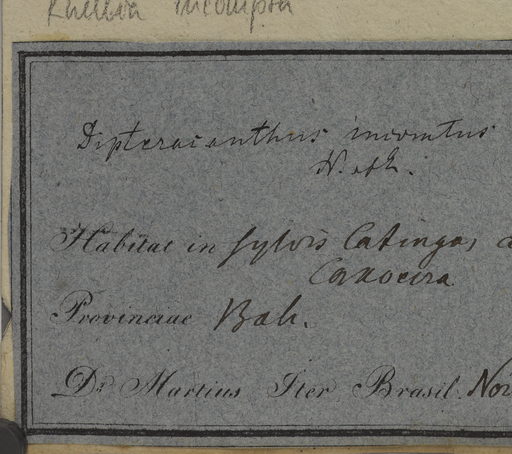 Ruellia incompta
Dipteracanthus incomtus
N. ab E.
Habitat in sylvis Catingas
Caxoeira
Provinciae Bah.
Dr. Martius Iter Brasil. Nov